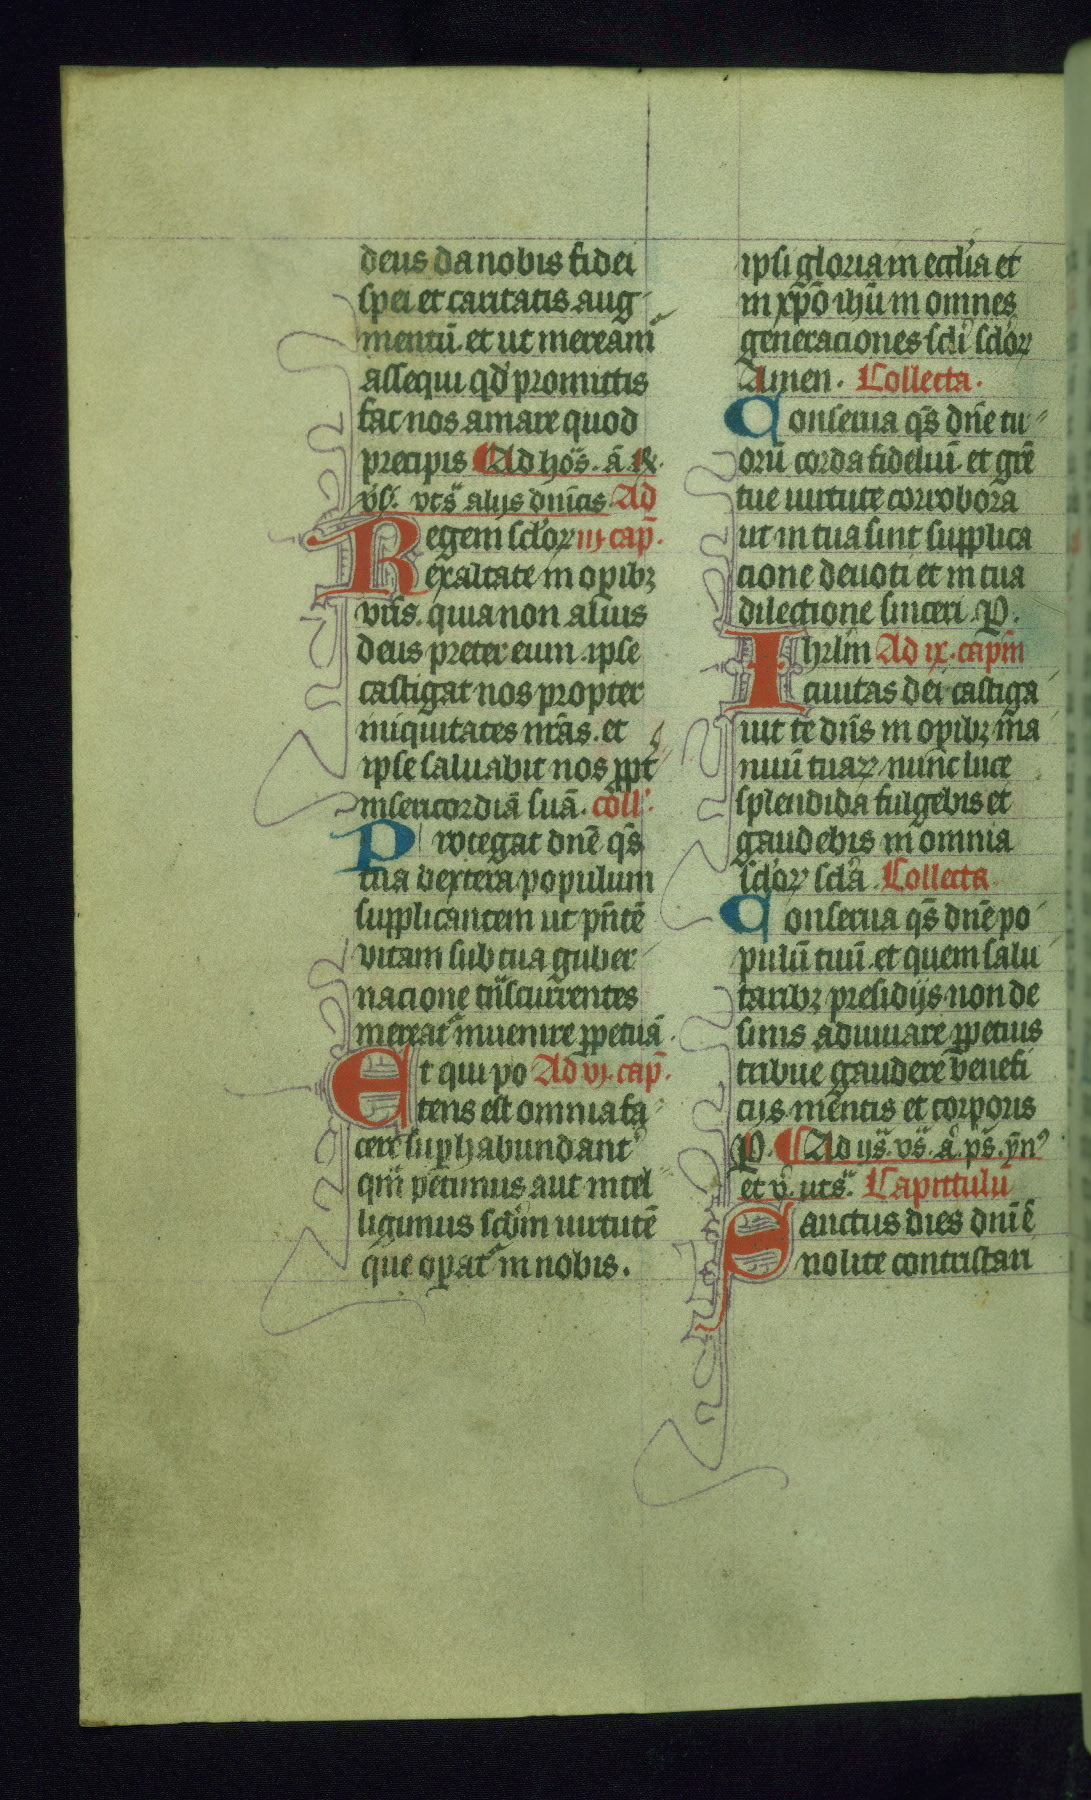 deus da nobis fidei
spei et caritatis aug
mentū. et ut meream̄
assequi qd̕ promittis
fac nos amare quod
precipis Ad hoꝛ̄s. ā. ℟.
v̕s̕. vts̄ alijs dn̄icis Ad
Regem sclo᷑ꝝ iij cap̄.
exaltate in opib᷒ꝫ
vr̄is. quia non alius
deus preter eum. ipse
castigat nos propter
iniquitates nr̄as. et
ipse saluabit nos ꝓpt̄
misericordiā suā. coll̕.
Protegat dn̄e qs̄
tua dextera populum
supplicantem ut pn̄tē
vitam sub tua guber
nacione tn̄scurrentes
mereat᷑ inuenire ꝑpetuā.
Et qui po Ad vj. cap̄.
tens est omnia fa
cere suꝑhabundant̕
qm̄ petimus aut intel
ligimus scd̄m uirtutē
que oꝑat᷑ in nobis.
ipsi gloria in eccl̕ia et
in xp̄o ihū in omnes
generaciones scl̕i scl̕oꝝ
Amen. Collecta.
Conserua qs̄ dn̄e tu
orū corda fideliū. et grē
tue uirtute corrobora
ut in tua sint supplica
cione deuoti et in tua
dilectione sinceri. P.
Ihrl̄m Ad ix. capm̄
ciuitas dei castiga
uit te dn̄s in opibꝫ ma
nuū tuaꝝ. nunc luce
splendida fulgebis et
gaudebis in omnia
scl̕oꝝ scl̕a. Collecta
Conserua qs̄ dn̄e po
pulū tuū. et quem salu
taribꝫ presidijs non de
sinis adiuuare ꝑpetuis
tribue gaudere benefi
cijs mentis et corporis
P. Ad ijs̄. vs̄. ā. ps̄. ym̄
et v̕. uts̄. Capitulū
Sanctus dies dn̄i ē
nolite contristari